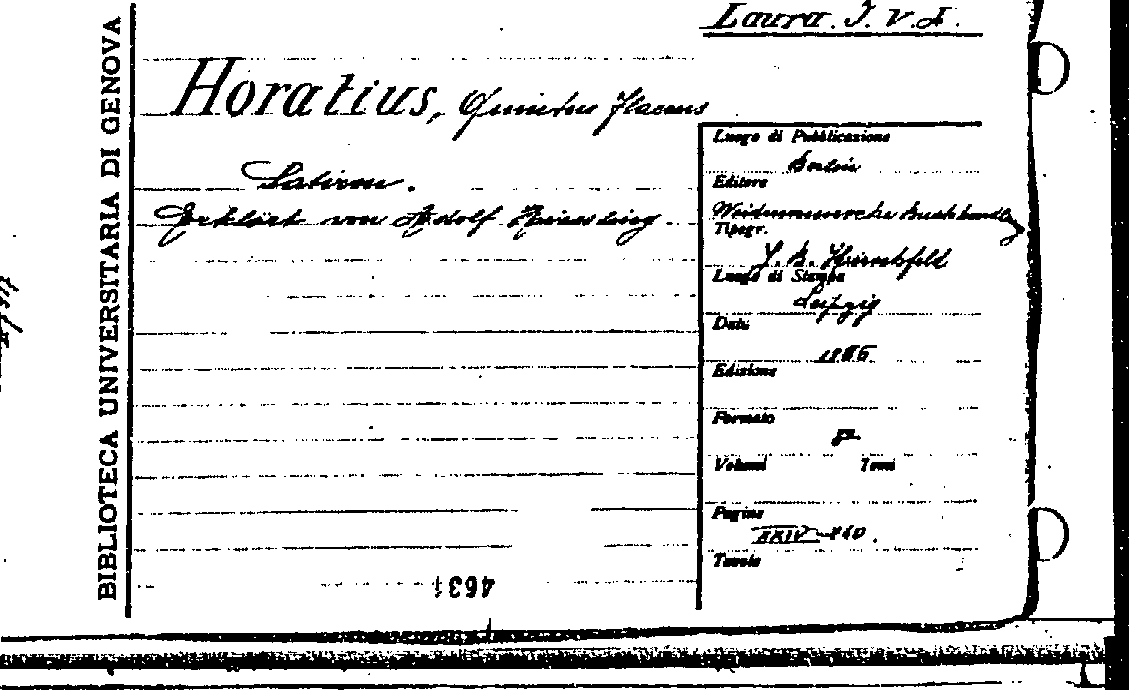 Laura. I. V. I.
BIBLIOTECA UNIVERSITARIA DI GENOVA
Horatius, Quintus Flaccus
Satiren.
Erklärt von Adolf Kiessling.
Luogo di Pubblicazione
Berlin
Editore
Weidmannsche Buchhandlg
Tipogr.
J. B. Hirschfeld
Luogo di Stampa
Leipzig
Data
1886
Edizione
Formato
8°
Volumi Tomi
Pagine
XXIV
Tavole
4631